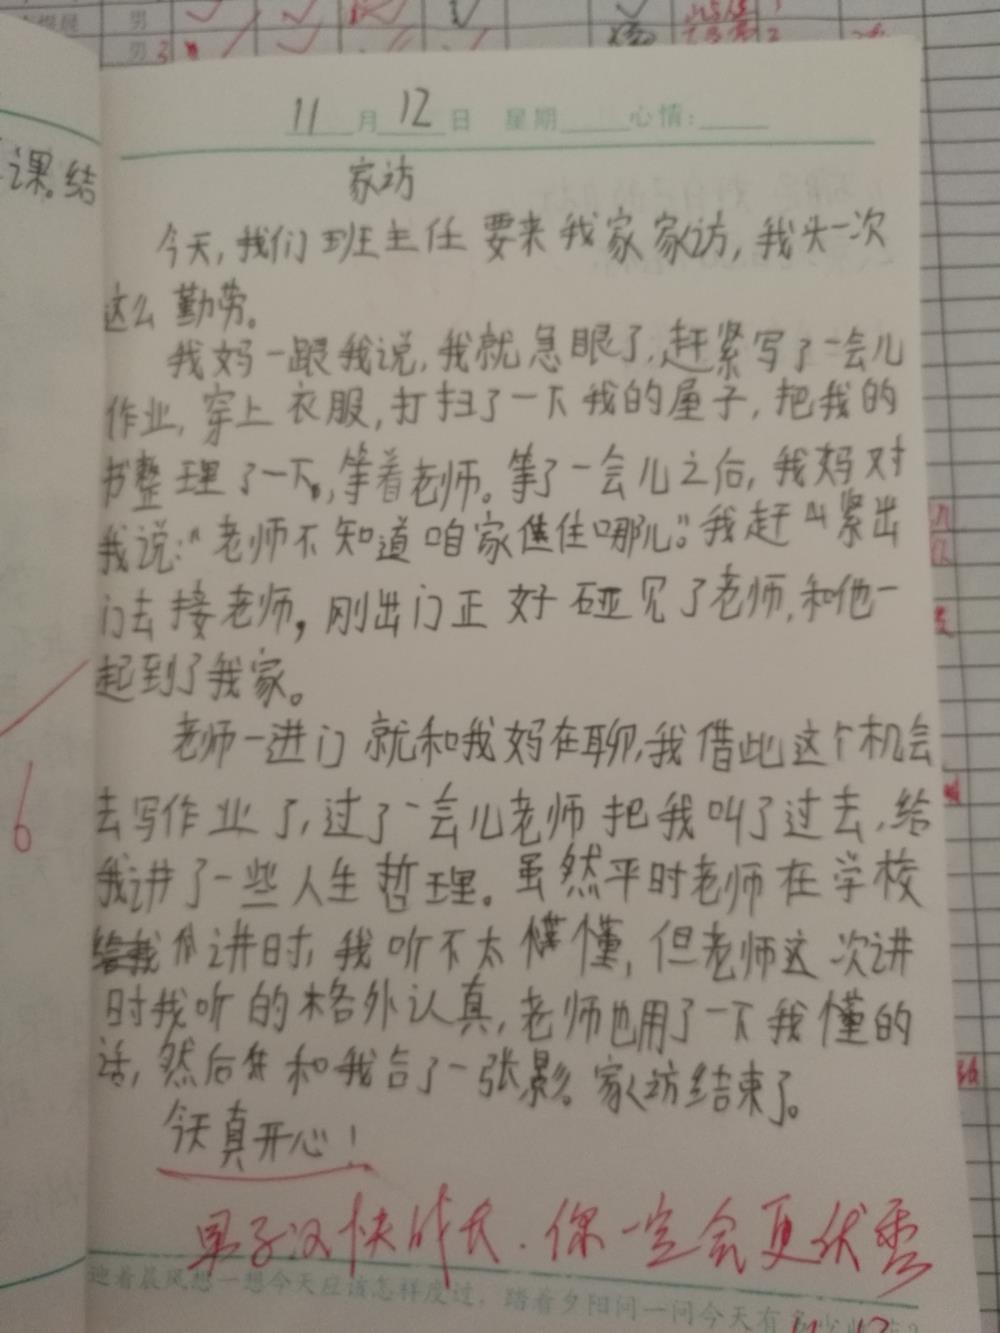 课。结
11月12日 星期 心情:
家访
今天,我们班主任要来我家家访,我头一次
这么勤劳。
我妈一跟我说,我就急眼了,赶紧写了一会儿
作业,穿上衣服,打扫了一下我的屋子,把我的
书整理了一下,等着老师。等了一会儿之后,我妈对
我说:“老师不知道咱家住哪儿。”我赶紧出
门去接老师,刚出门正好碰见了老师,和他一
起到了我家。
老师一进门就和我妈在聊,我借此这个机会
去写作业了,过了一会儿老师把我叫了过去,给
我讲了一些人生哲理。虽然平时老师在学校
讲时,我听不太懂,但老师这次讲
时我听的格外认真,老师也用了一下我懂的
话,然后和我合了一张影。家访结束了。
今天真开心!
6
男子汉快成长.你一定会更优秀
迎着晨风想一想今天应该怎样度过,踏着夕阳问一问今天有多少收获?